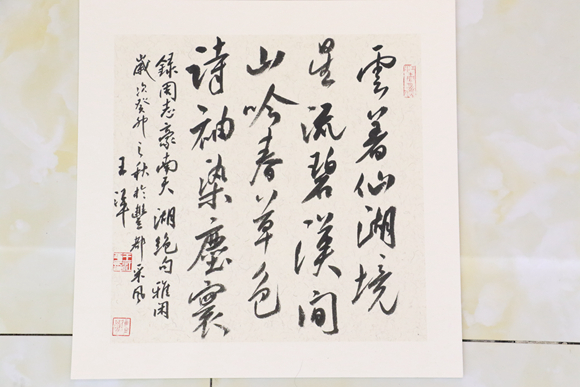 雲着仙湖境
星流碧漢間
山吟春草色
詩袖染塵寰
錄周志豪南天湖絕句雅閑
歲次癸卯之秋於豐都采風
王渾